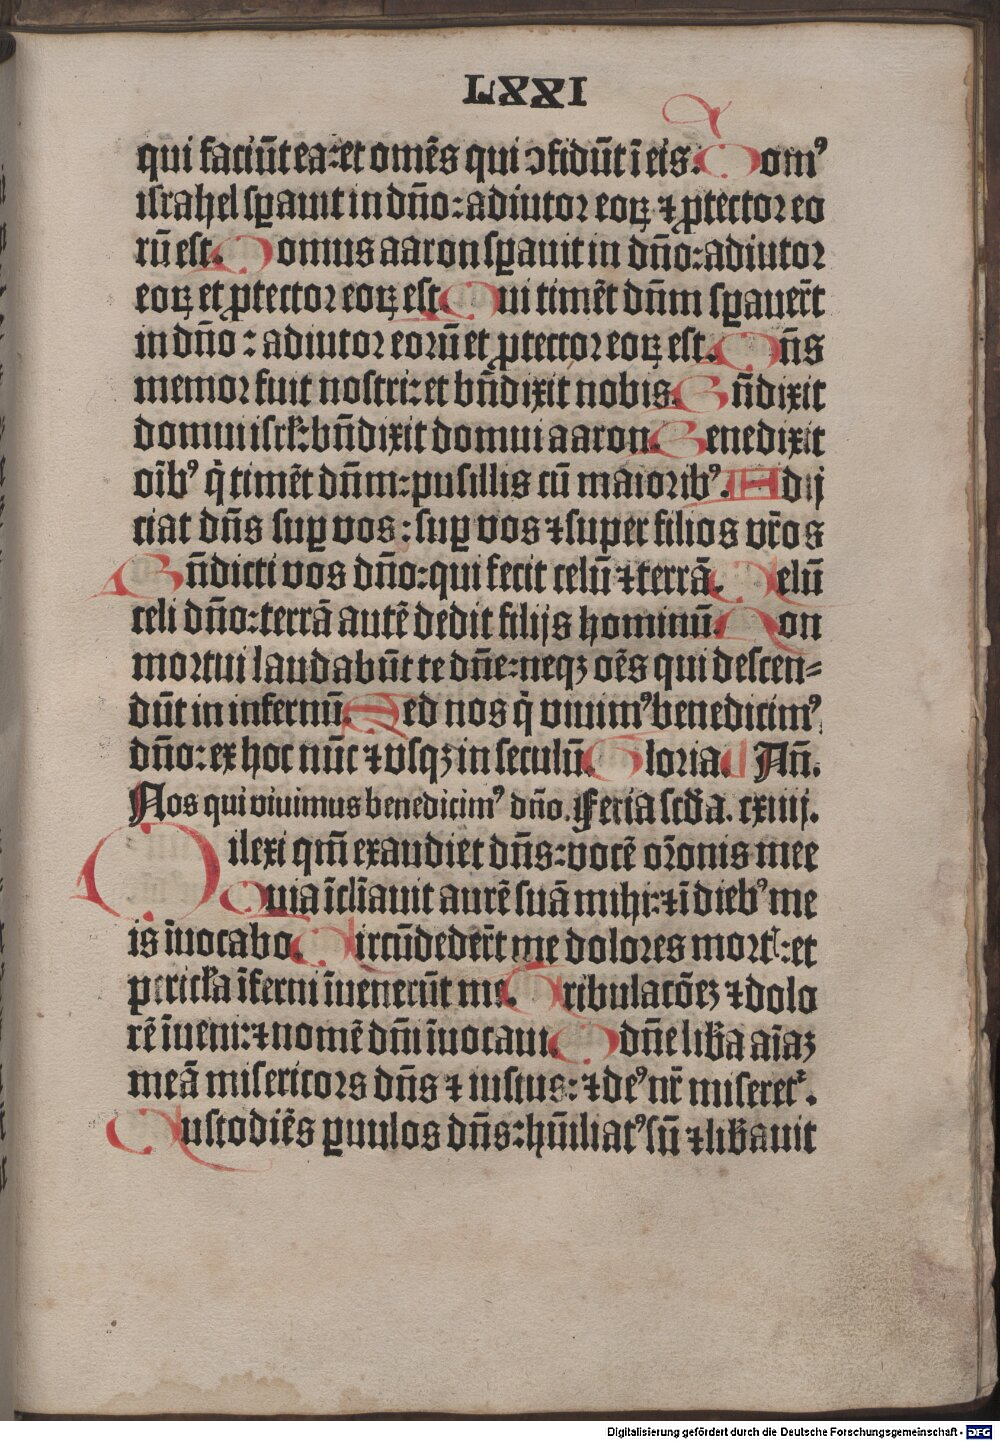 LXXI
qui faciūt ea: et omēs qui ↄfidūt ī eis. Domꝰ
israhel sꝑauit in dño: adiutor eoꝝ ⁊ ꝓtector eo
rū est. Domus aaron sꝑauit in dño: adiutor
eoꝝ et ꝓtector eoꝝ est. Qui timēt dñm sꝑauer̄t
in dño: adiutor eorū et ꝓtector eoꝝ est. Dñs
memor fuit nostri: et bñdixit nobis. Bñdixit
domui isrł: bñdixit domui aaron. Benedixit
oībꝰ q̄ timēt dñm: pusillis cū maioribꝰ. Adij
ciat dñs suꝑ vos: suꝑ vos ⁊ super filios vr̄os
Bñdicti vos dño: qui fecit celū ⁊ terrā. Celū
celi dño: terrā autē dedit filijs hominū. Non
mortui laudabūt te dñe: neqꝫ oēs qui descen-
dūt in infernū. Sed nos q̄ viuimꝰ benedicimꝰ
dño: ex hoc nūc ⁊ vsqꝫ in seculū. Gloria. Añ.
Nos qui viuimus benedicimꝰ dño. Feria scđa. cxiiij.
Dilexi qm̄ exaudiet dñs: vocē or̄onis mee
Quia īclīauit aurē suā mihi: ⁊ ī diebꝰ me
is īuocabo. Circūdeder̄t me dolores mortꝭ: et
pericła īferni īuenerūt me. Tribulacōeꝫ ⁊ dolo
rē īueni: ⁊ nomē dñi īuocaui. O dñe lib̄a aīaꝫ
meā misericors dñs ⁊ iustus: ⁊ deꝰ nr̄ miseret᷑.
Custodiēs ꝑuulos dñs: hūiliatꝰ sū ⁊ lib̄auit
Digitalisierung gefördert durch die Deutsche Forschungsgemeinschaft - DFG